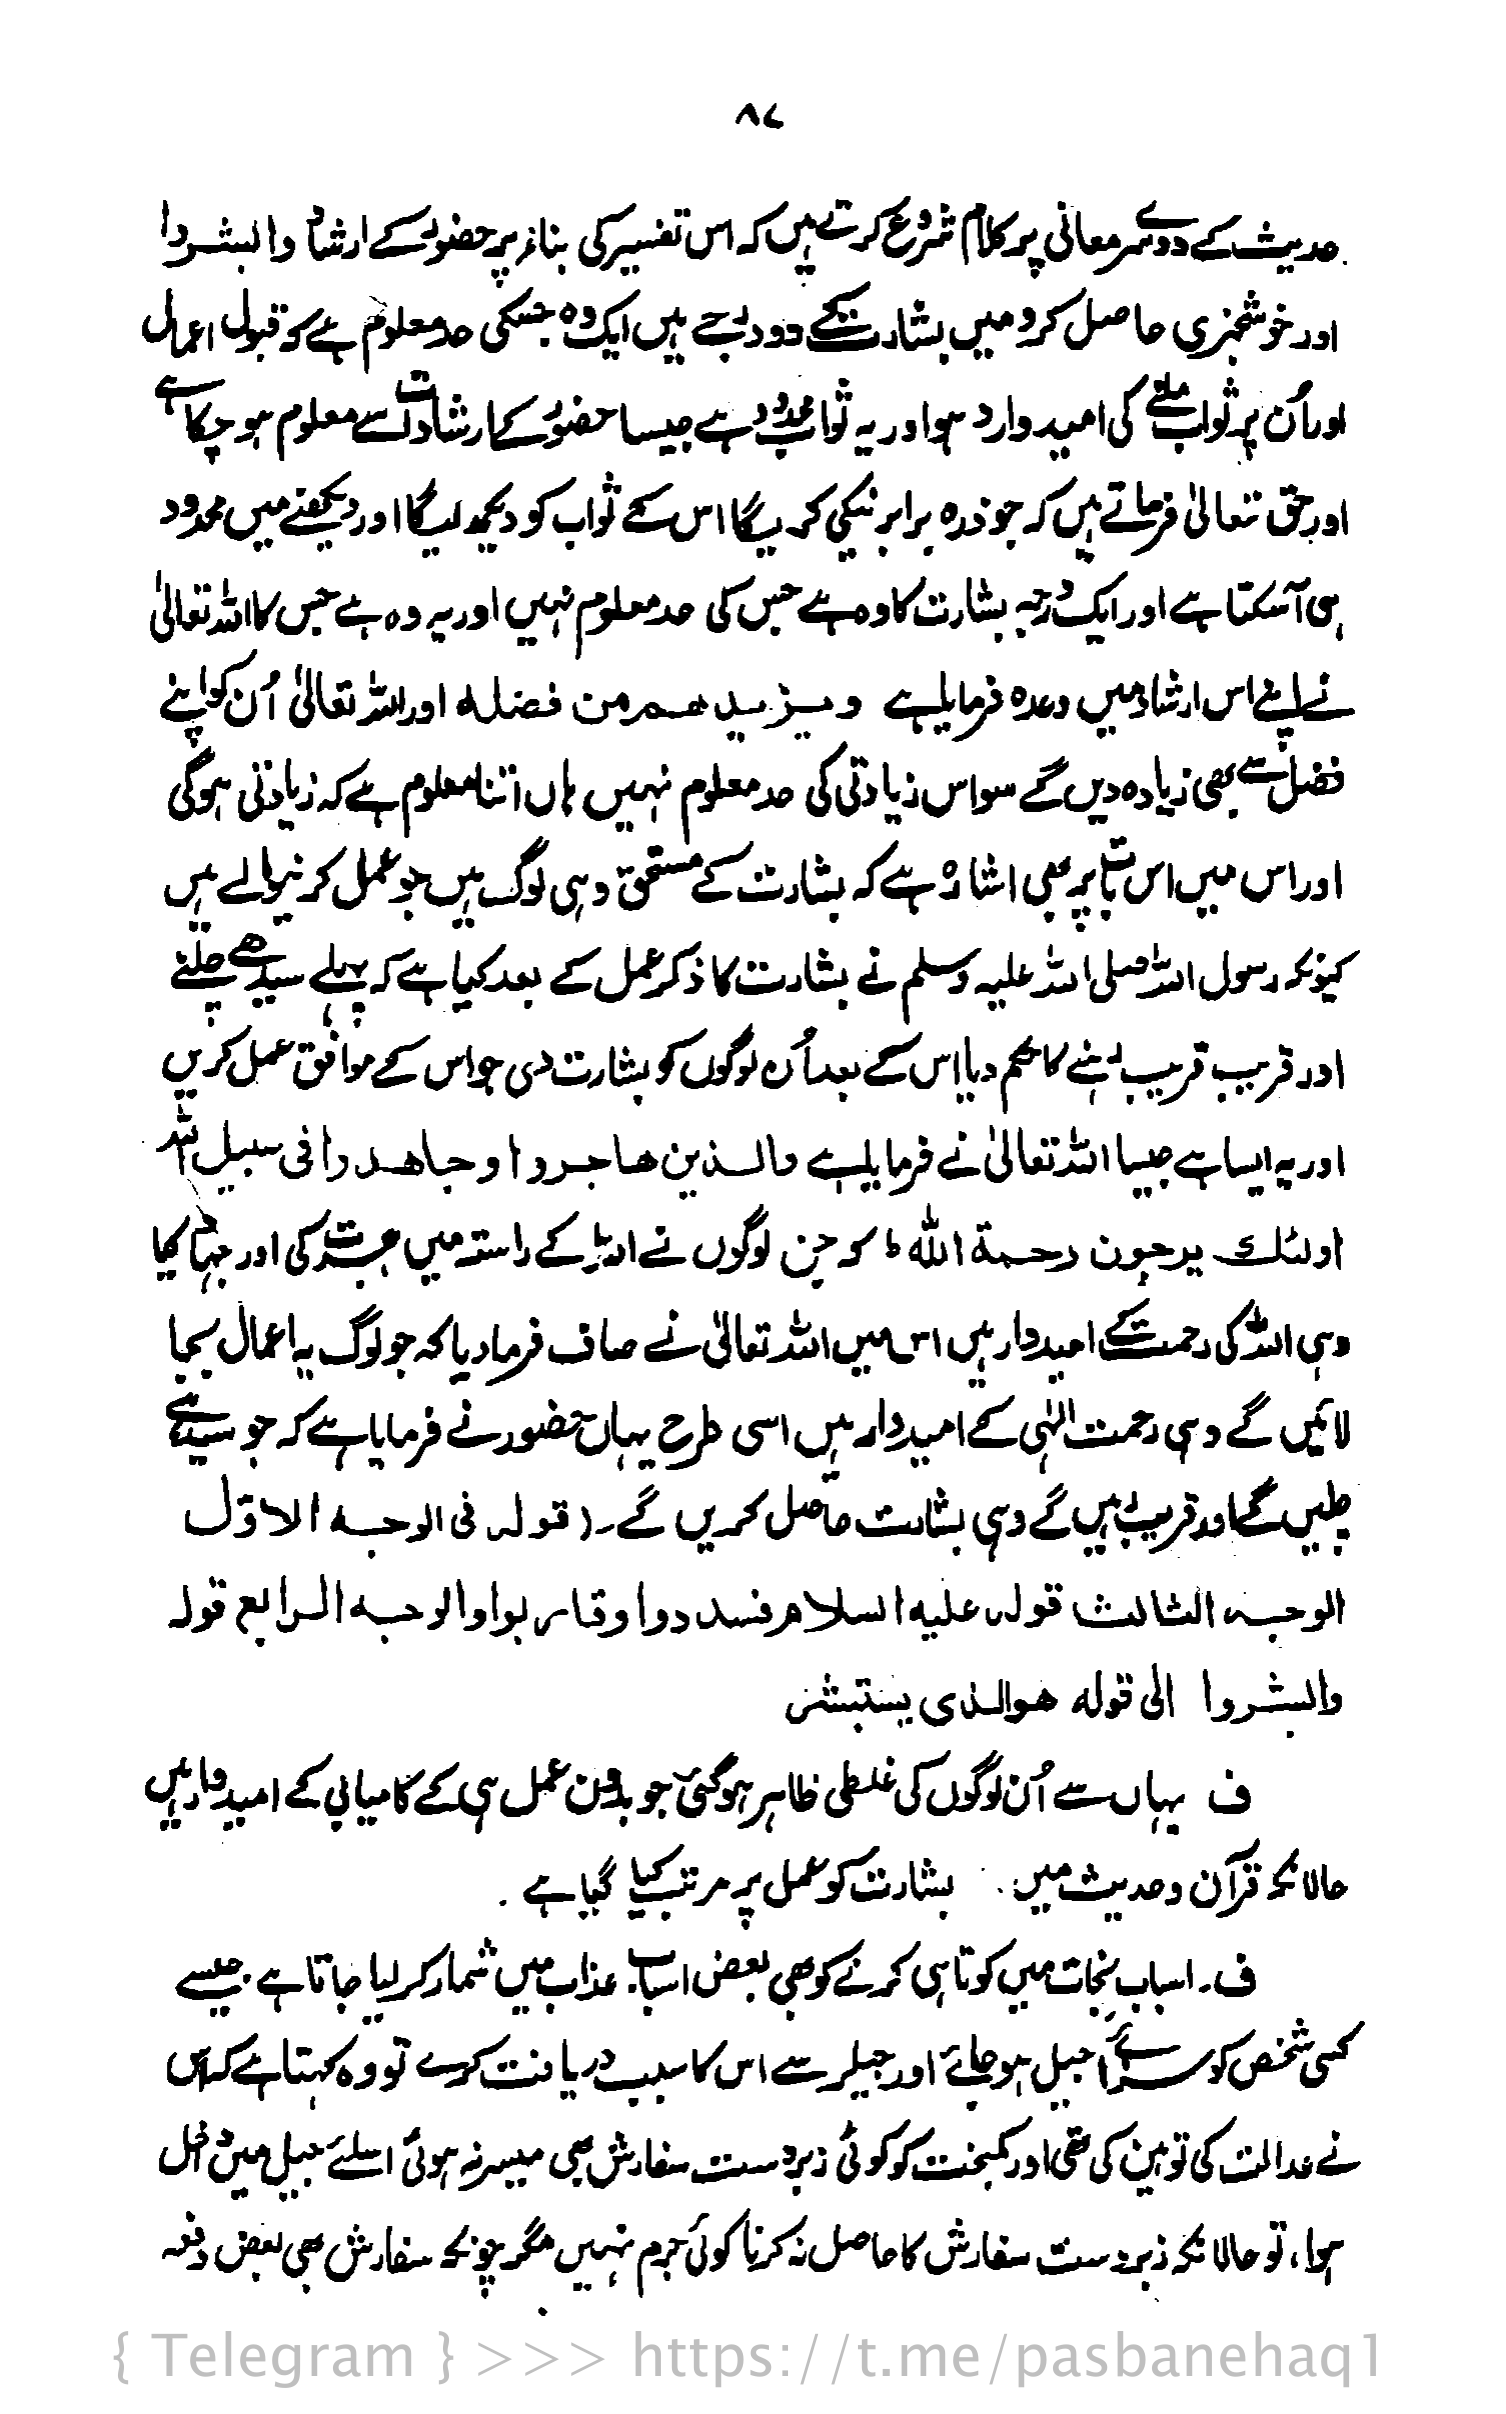 ۸۷
حدیث کے دوسرے معانی پر کلام شروع کرتے ہیں کہ اس تفسیر کی بناء پر حضورؐ کے ارشاد وابشروا
اور خوشخبری حاصل کرو میں بشارت کے دو درجے ہیں ایک وہ جسکی حد معلوم ہے کہ قبول اعمال
اور اُن پر ثواب ملنے کی امید وارد ہو اور یہ ثواب محدود ہے جیسا حضورؐ کے ارشادات سے معلوم ہو چکا ہے
اور حق تعالیٰ فرماتے ہیں کہ جو ذرہ برابر نیکی کریگا اس کے ثواب کو دیکھ لیگا اور دیکھنے میں محدود
ہی آسکتا ہے اور ایک درجہ بشارت کا وہ ہے جس کی حد معلوم نہیں اور یہ وہ ہے جس کا اللہ تعالیٰ
نے اپنے اس ارشاد میں وعدہ فرمایا ہے ویزیدھم من فضلہ اور اللہ تعالیٰ اُن کو اپنے
فضل سے بھی زیادہ دیں گے سو اس زیادتی کی حد معلوم نہیں ہاں اتنا معلوم ہے کہ زیادتی ہوگی
اور اس میں اس بات پر بھی اشارہ ہے کہ بشارت کے مستحق وہی لوگ ہیں جو عمل کرنیوالے ہیں
کیونکہ رسول اللہ صلی اللہ علیہ وسلم نے بشارت کا ذکر عمل کے بعد کیا ہے کہ پہلے سیدھے چلنے
اور قریب قریب رہنے کا حکم دیا اس کے بعد اُن لوگوں کو بشارت دی جو اس کے موافق عمل کریں
اور یہ ایسا ہے جیسا اللہ تعالیٰ نے فرمایا ہے والذین ھاجروا وجاھدوا فی سبیل اللہ
اولئک یرجون رحمة اللہ ط کہ جن لوگوں نے اللہ کے راستہ میں ہجرت کی اور جہاد کیا
وہی اللہ کی رحمت کے امیدوار ہیں اس میں اللہ تعالیٰ نے صاف فرما دیا کہ جو لوگ یہ اعمال بجا
لائیں گے وہی رحمت الٰہی کے امیدوار ہیں اسی طرح یہاں حضور نے فرمایا ہے کہ جو سیدھے
چلیں گے اور قریب رہیں گے وہی بشارت حاصل کریں گے۔ (قولہ فی الوجہ الاوّل
الوجہ الثالث قولہ علیہ السلام فسددوا وقاربوا والوجہ الرابع قولہ
وابشروا الی قولہ ھوالذی یستبشر
ف یہاں سے اُن لوگوں کی غلطی ظاہر ہوگئی جو بدون عمل ہی کے کامیابی کے امیدوار ہیں
حالانکہ قرآن وحدیث میں بشارت کو عمل پر مرتب کیا گیا ہے ۔
ف۔ اسباب نجات میں کوتاہی کرنے کو بھی بعض اسباب عذاب میں شمار کرلیا جاتا ہے جیسے
کسی شخص کو سزائے جیل ہو جائے اور جیلر سے اس کا سبب دریافت کرے تو وہ کہتا ہے کہ اس
نے عدالت کی توہین کی تھی اور کمبخت کو کوئی زبردست سفارش بھی میسر نہ ہوئی اسلئے جیل میں داخل
ہوا، تو حالانکہ زبردست سفارش کا حاصل نہ کرنا کوئی جرم نہیں مگر چونکہ سفارش بھی بعض دفعہ
{ Telegram } >>> https://t.me/pasbanehaq1